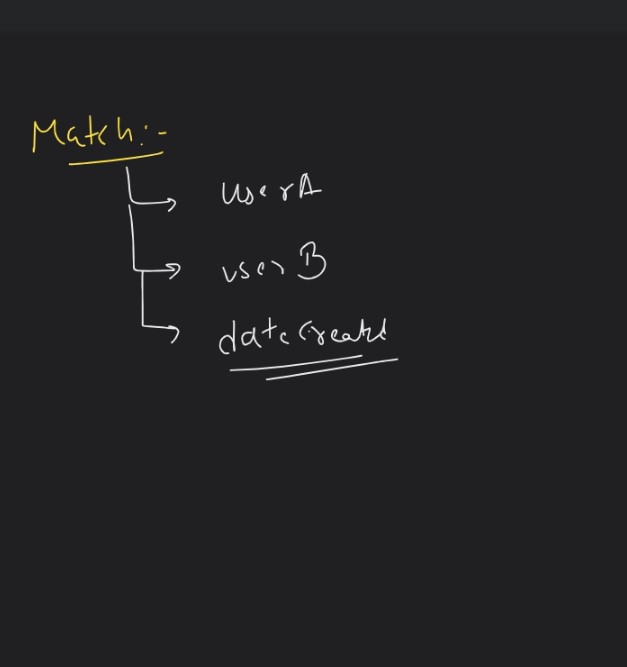 Match:-
userA
userB
dateCreated